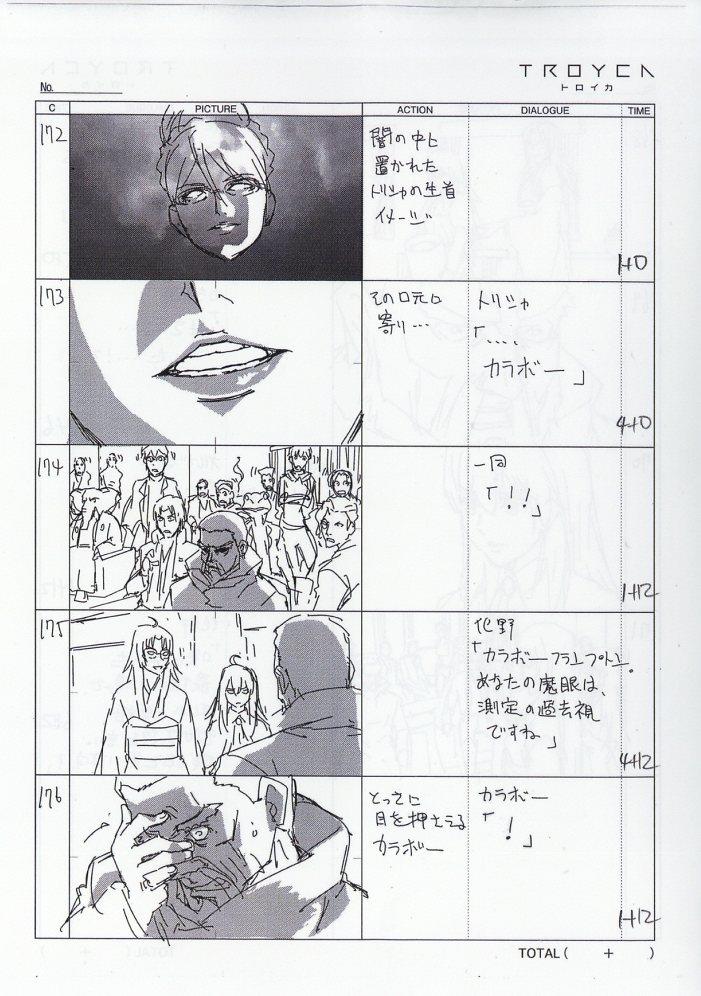 TROYCA
トロイカ
No.
C PICTURE ACTION DIALOGUE TIME
172
闇の中に
置かれた
トリシャの生首
イメージ
1+0
173
その口元に
寄り…
トリシャ
「….
カラボー」
4+0
174
一同
「!!」
1+12
175
化野
「カラボーフランプトン。
あなたの魔眼は、
測定の過去視
ですね」
4+12
176
とっさに
目を押さえる
カラボー
カラボー
「!」
1+12
TOTAL ( + )